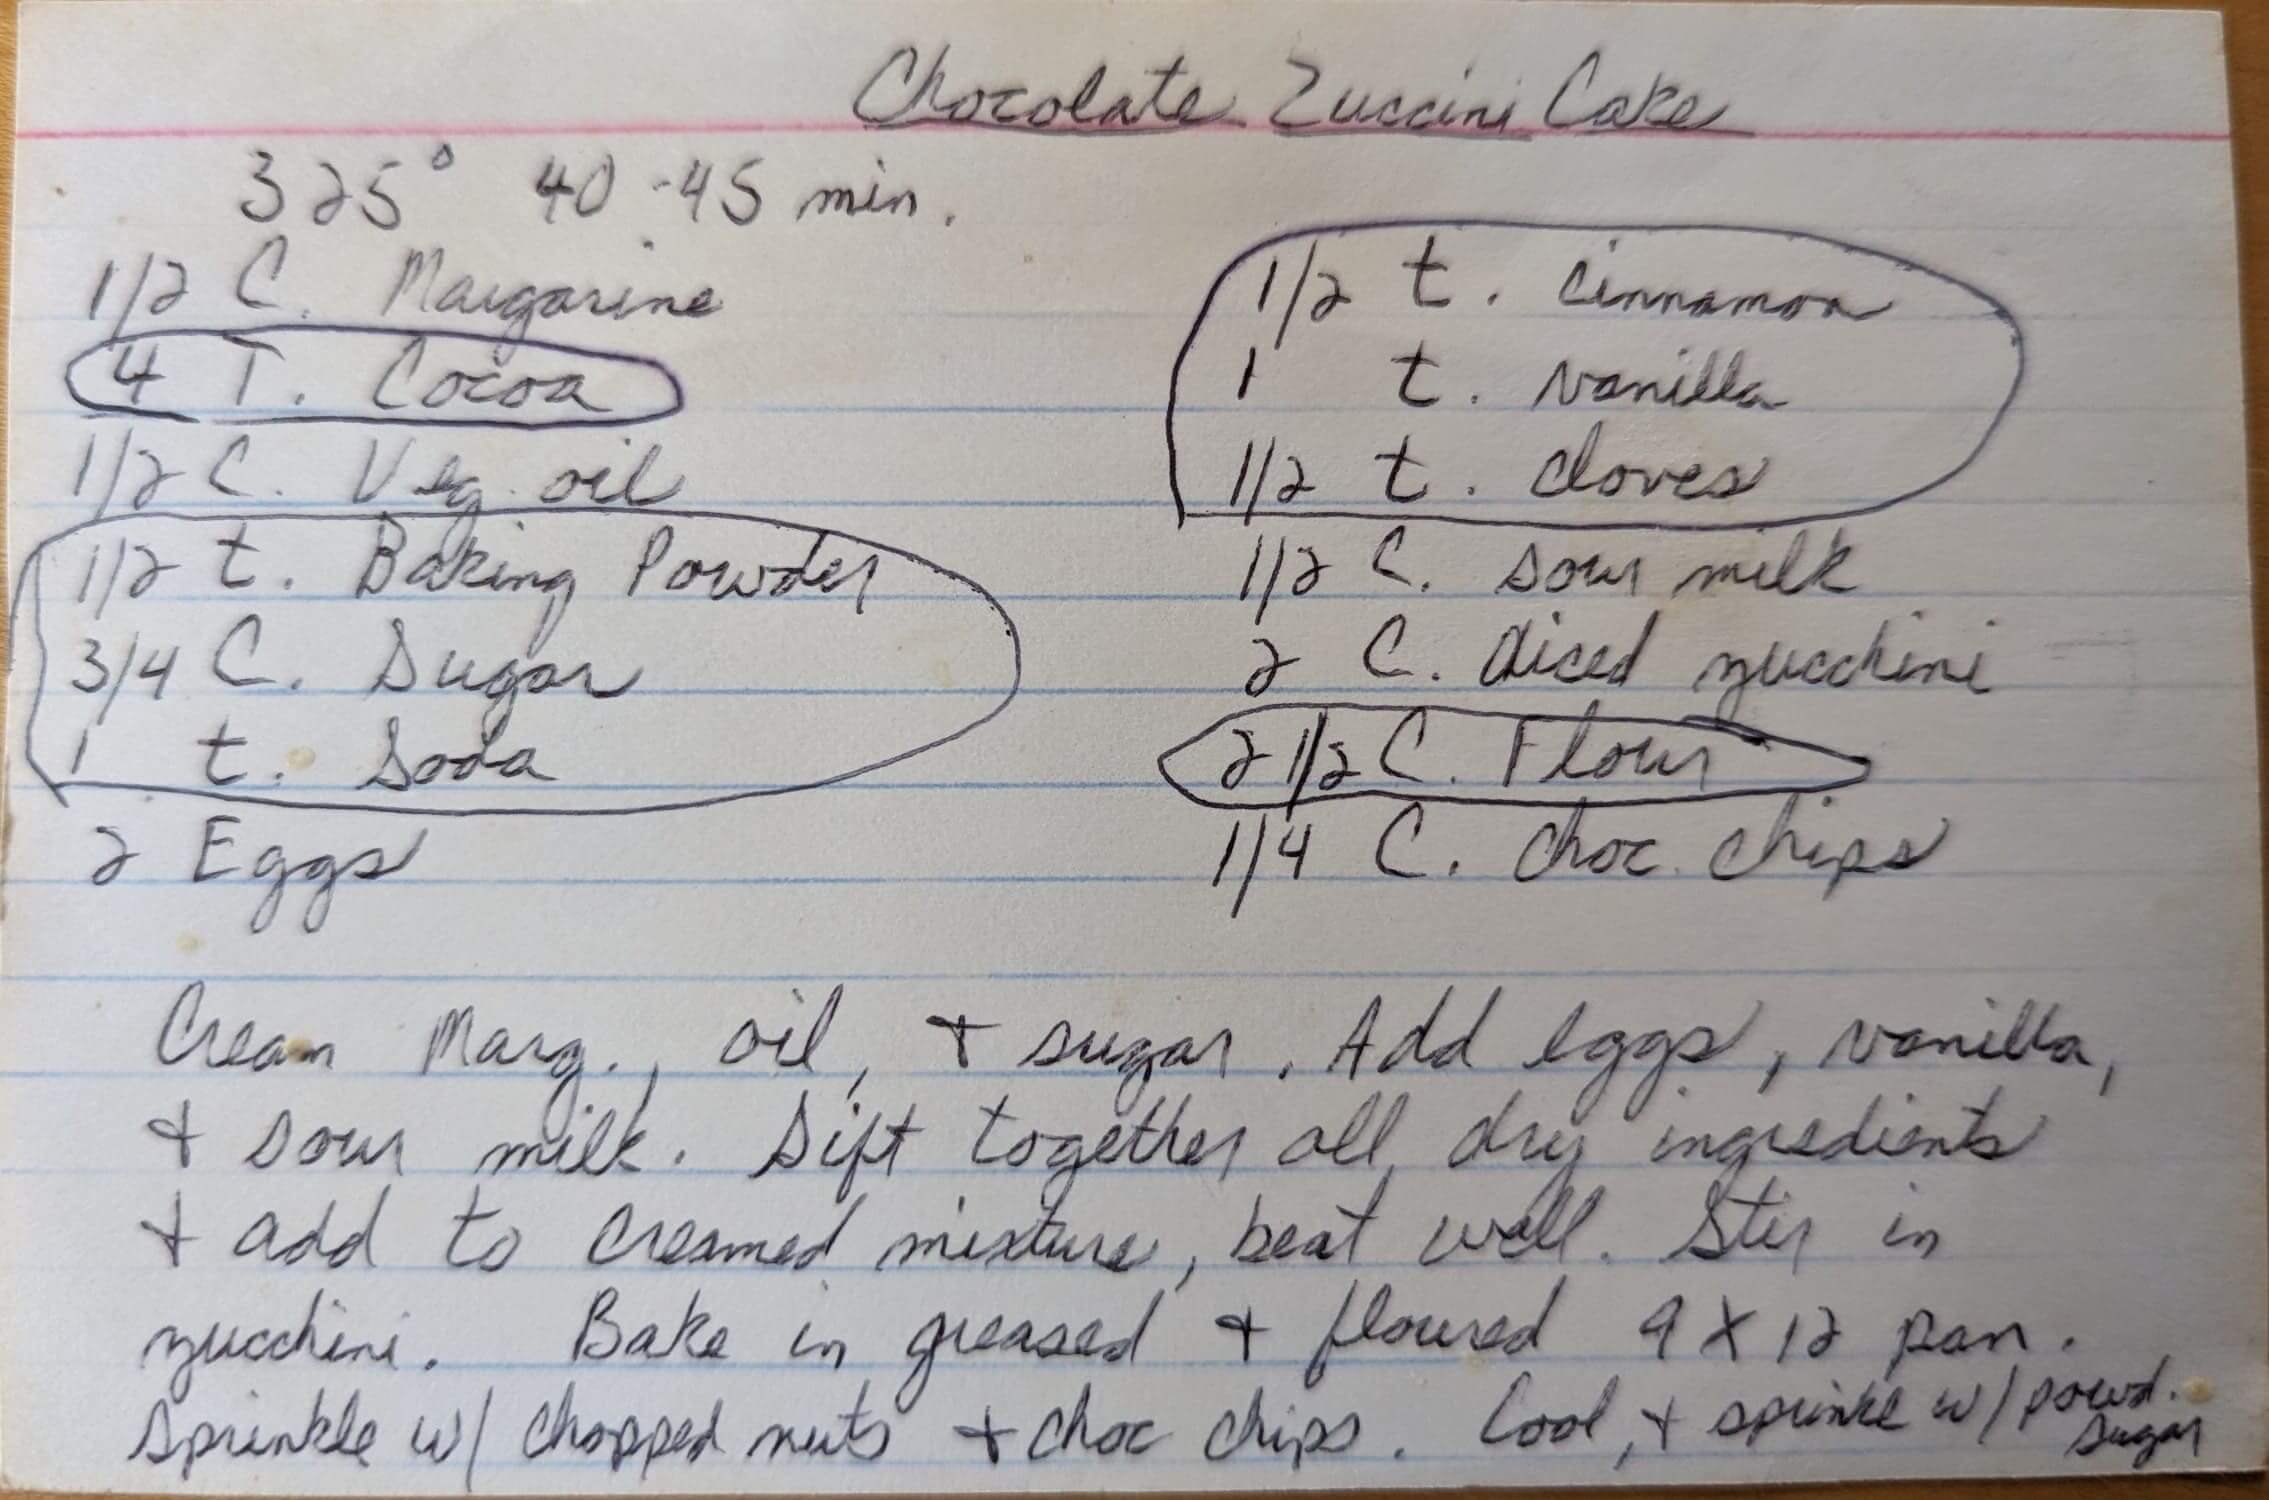 Chocolate Zuccini Cake
325° 40-45 min.
1/2 C. Margarine
4 T. Cocoa
1/2 C. Veg. oil
1/2 t. Baking Powder
3/4 C. Sugar
1 t. Soda
2 Eggs
1/2 t. Cinnamon
1 t. vanilla
1/2 t. cloves
1/2 C. sour milk
2 C. diced zucchini
2 1/2 C. Flour
1/4 C. choc. chips
Cream Marg., oil, + sugar. Add eggs, vanilla,
+ sour milk. Sift together all dry ingredients
+ add to creamed mixture, beat well. Stir in
zucchini. Bake in greased + floured 9 X 12 pan.
Sprinkle w/ chopped nuts + choc chips. Cool, + sprinkle w/ powd.
sugar